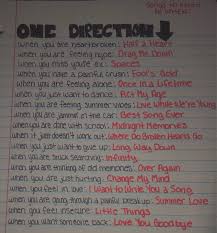 songs to listen
to when:
ONE DIRECTION
when you are heartbroken: Half a Heart
when you are feeling hype: Drag Me Down
when you miss you're ex: Spaces
when you have a painful crush: Fool's Gold
when you are feeling alone: Once in a Lifetime
when you just want to dance: Act My Age
when you are feeling summer vibes: Live While We're Young
when you are jammin' in the car: Best Song Ever
when you are done with school: Midnight Memories
when it just doesn't work out: Where Do Broken Hearts Go
when you just want to give up: Long Way Down
when you are stuck searching: Infinity
when you are thinking of old memories: Over Again
when you are just hurting: Change My Mind
when you feel in love: I Want to Write You a Song
when you are going through a painful breakup: Summer Love
when you feel insecure: Little Things
when you want someone back: Love You Goodbye